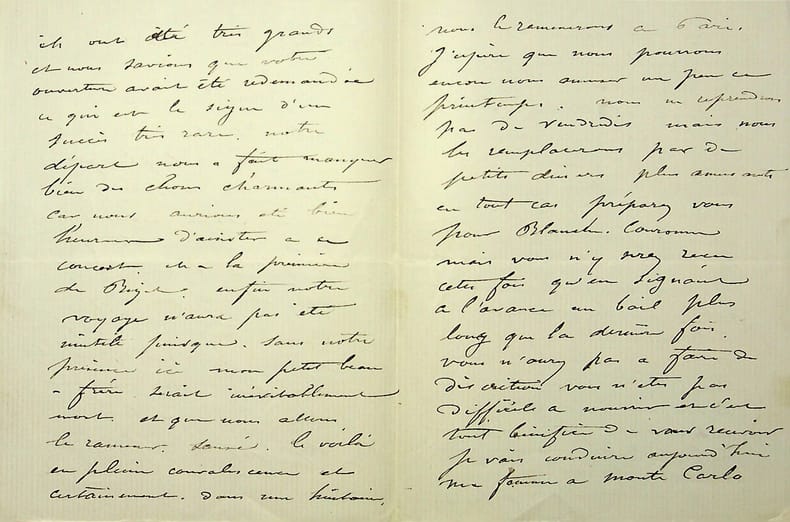 ils ont été très grands
et nous savions que votre
ouverture avait été redemandée
ce qui est le signe d'un
succès très rare. notre
départ nous a fait manquer
bien des choses charmantes
car nous aurions été bien
heureux d'assister a ce
concert et a la première
de Bizet. enfin notre
voyage n'aura pas été
inutile puisque sans notre
présence ici mon petit beau
- frère serait inévitablement
mort et que nous allons
le ramener sauvé. le voilà
en pleine convalescence et
certainement dans une huitaine,
nous le ramenerons a Paris.
J'espère que nous pourrons
encore nous amuser un peu ce
printemps. nous ne reprendrons
pas de vendredis mais nous
les remplacerons par de
petits diners plus amusants
en tout cas préparez vous
pour Blanche. Couronne
mais vous n'y serez reçu
cette fois qu'en signant
a l'avance un bail plus
long que la dernière fois.
vous n'aurez pas a faire de
discrétion vous n'etes pas
difficile a nourrir et c'est
tout bénéfice de vous recevoir
Je vais conduire aujourd'hui
ma femme a monte Carlo